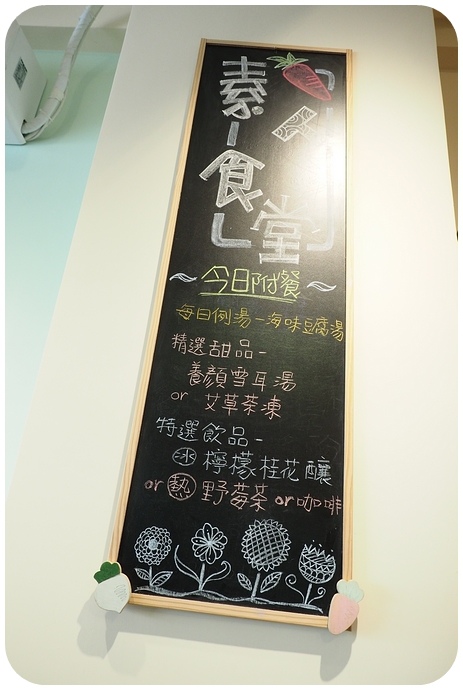 素食堂
～今日附餐～
每日例湯－海味豆腐湯
精選甜品－
養顏雪耳湯
or 艾草茶凍
特選飲品－
冰 檸檬桂花釀
or 熱 野莓茶 or 咖啡